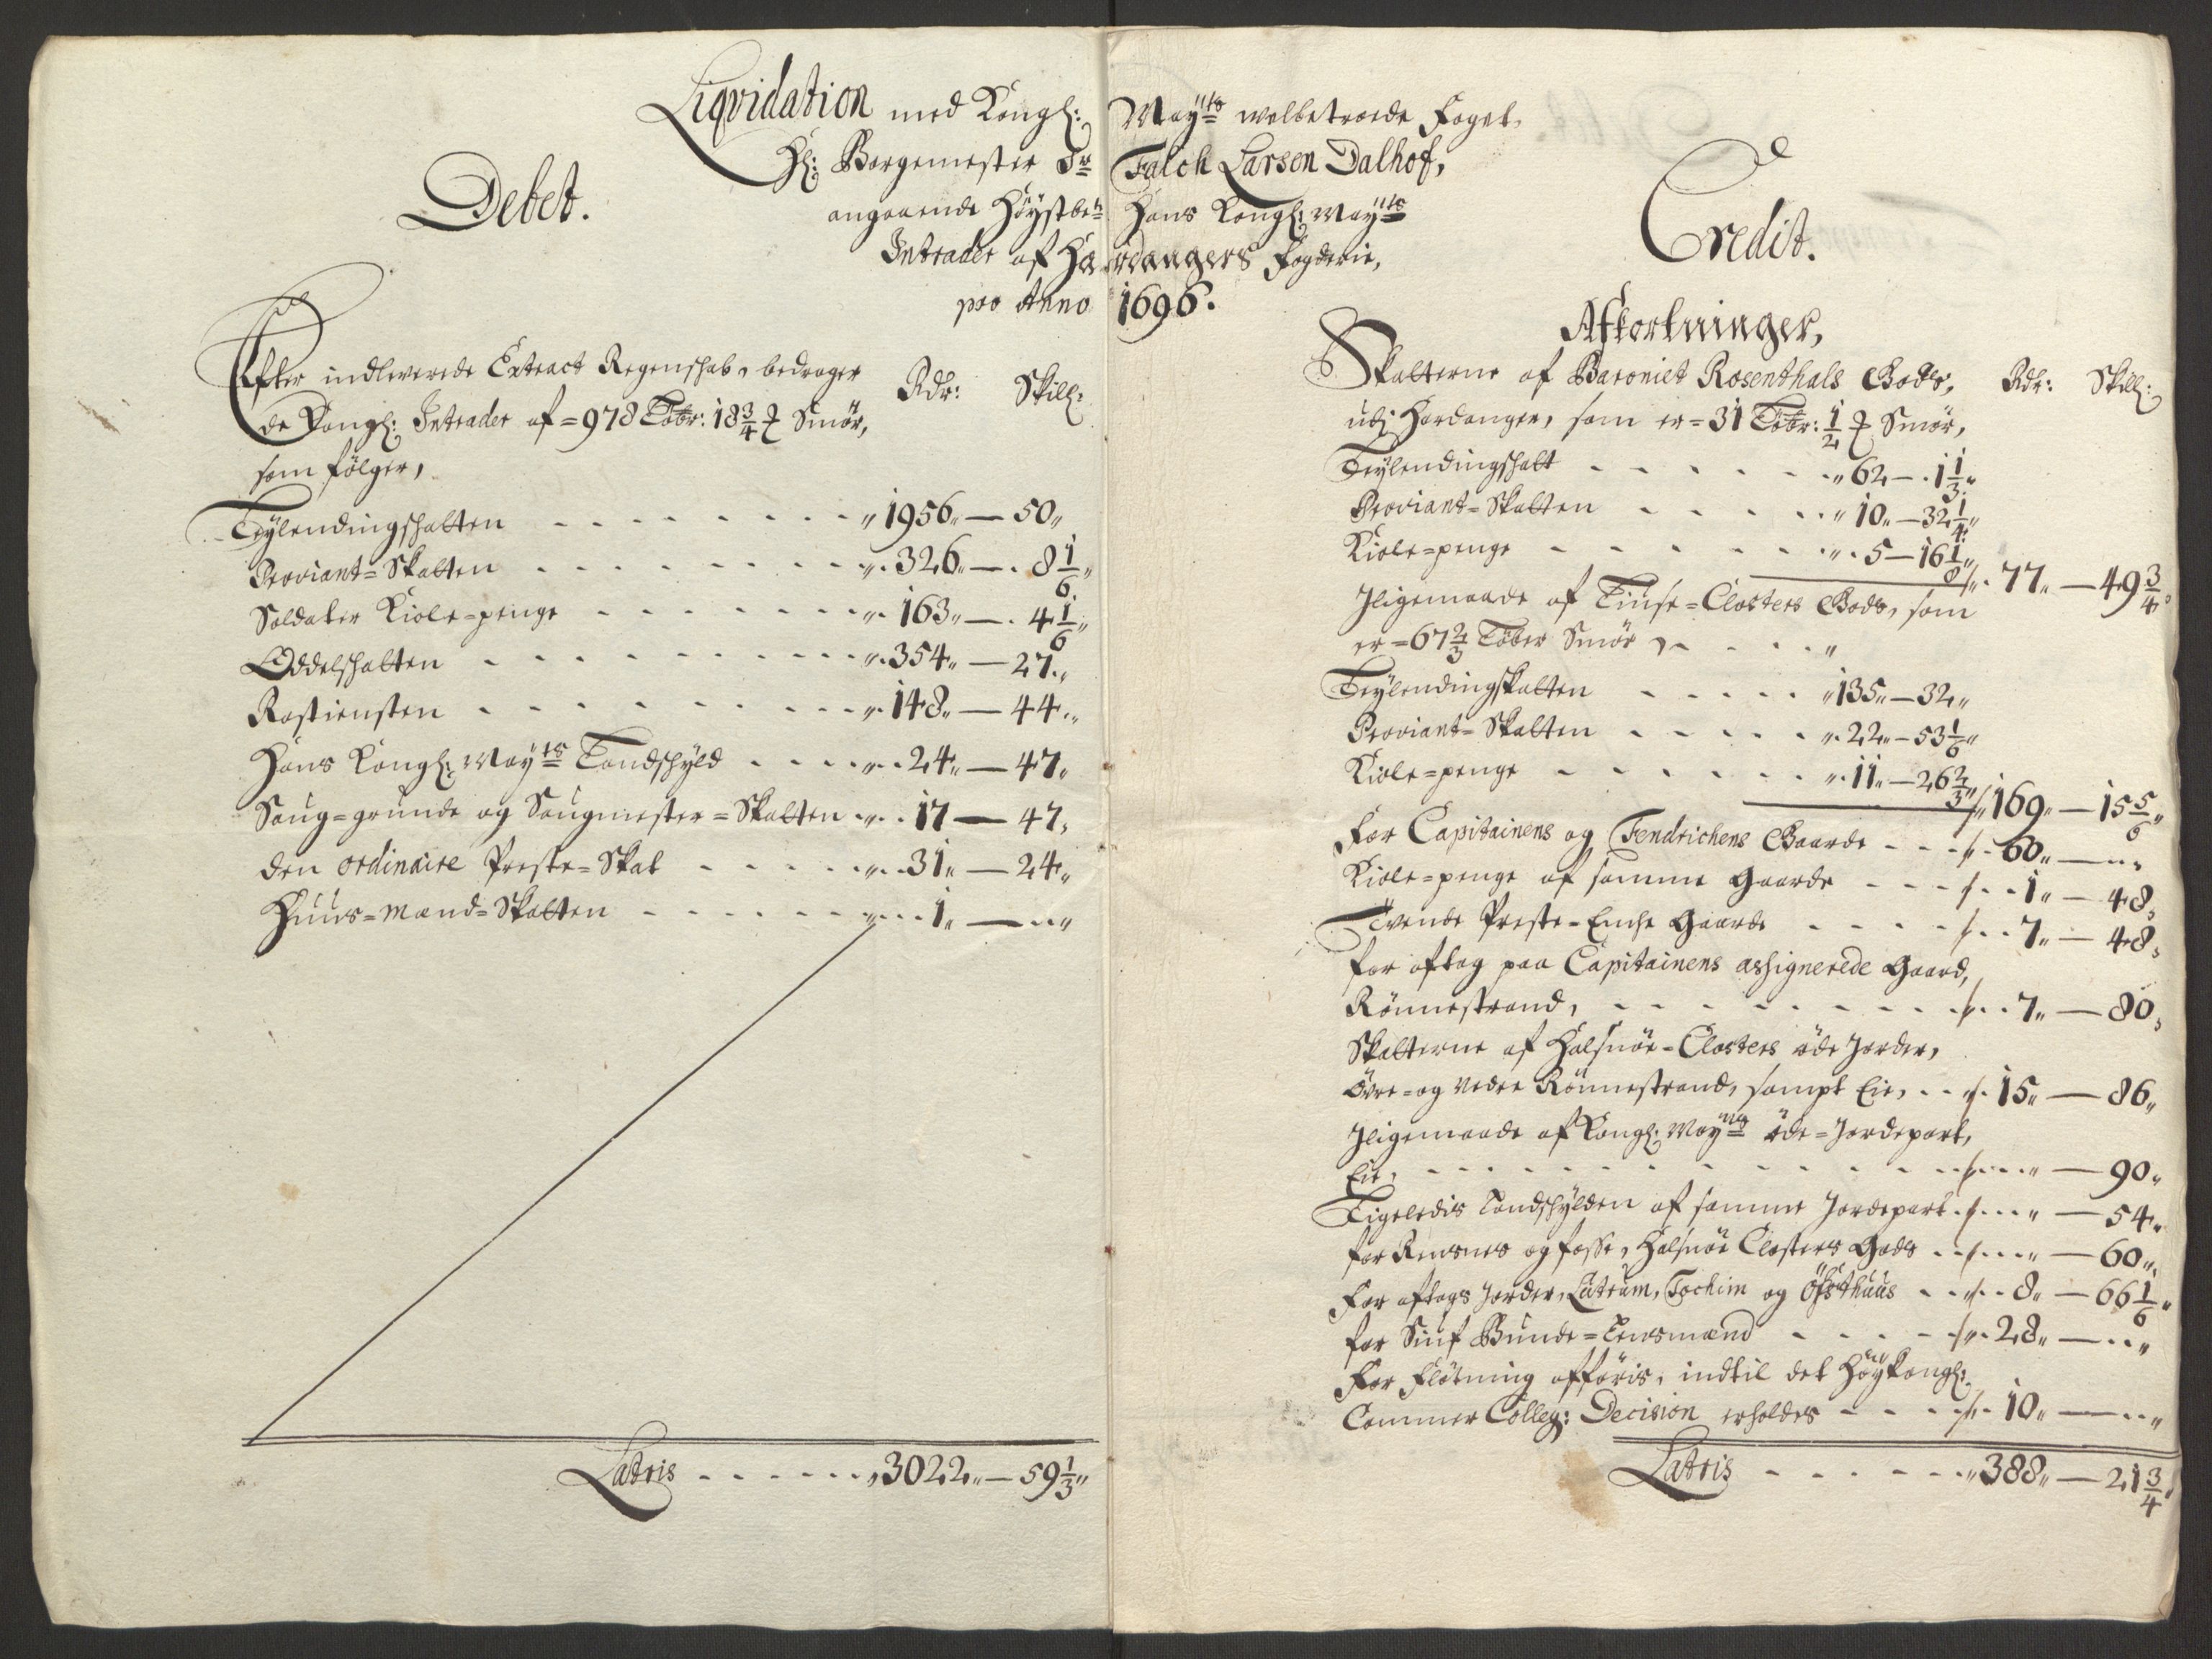 Liqvidation med Kongl: Mayts welbetroede Foget,
Hl: Borgemester Sr Falch Larsen Dalhof,
angaaende Høystbete Hans Kongl: Mayts
Intrader af Hardangers Fogderie,
pro Anno 1696.
Debet.
Efter indleverede Extract Regenschab, bedrager Rdr: Skill:
de Kongl: Intrader af = 978 Løbr: 18 3/4 Smör,
som fölger,
Leylendingschatten - - - - - - - - „ 1956„ — 50„
Proviant=Skatten - - - - - - - „ 326„ — 8 1/6„
Soldater Kiole=penge - - - - - - - „ 163„ — 4 1/6„
Oddelschatten - - - - - - - - - „ 354„ — 27„
Rostiensten - - - - - - - - - „ 148„ — 44„
Hans Kongl: Mayts Landschyld - - - - „ 24„ — 47„
Saug=grunde og Saugmester=Skatten „ 17 — 47„
den ordinaire Preste=Skat - - - - - „ 31„ — 24„
Huus=Mænd=Skatten - - - - - - - „ 1„ — „
Latris - - - - - - „ 3022„ — 59 1/3„
Credit.
Afkortninger,
Skatterne af Baroniet Rosenthals Gods, Rdr: Skill:
udj Hardanger, som er = 31 Løbr: 1/2 Smör,
Leylendingschatt - - - - - - - „ 62 — 1 1/3„
Proviant=Skatten - - - - - „ 10„ — 32 1/4„
Kiole=penge - - - - - - - „ 5 — 16 1/8„ „ 77„ — 49 3/4„
Jligemaade af Liuse=Closters Gods, som
er = 67 2/3 Løber Smör - - - - „
Leylendingskatten - - - - - „ 135„ — 32„
Proviant=Skatten - - - - - „ 22„ — 53 1/6„
Kiole=penge - - - - - - „ 11„ — 26 2/3„ „ 169„ — 15 5/6„
For Capitainens og Fendrichens Gaarde - - - „ 60„ — „
Kiole=penge af samme Gaarde - - - „ 1„ — 48„
Tvende Preste=Enche Gaarde - - - - „ 7„ — 48„
for aftag paa Capitainens assignerede Gaard,
Rönnestrand, - - - - - - - - - „ 7„ — 80„
Skatterne af Halsnöe=Closters öde Jorder,
övre=og nedre Rönnestrand, sampt Eie, - - „ 15„ — 86„
Jligemaade af Kongl: Mayts öde=Jordepart,
Eie, - - - - - - - - - - - - „ — 90„
Ligeledis Landschylden af samme Jordepart „ — 54„
for Rensnes og fosse, Halsnöe Closters Gods „ — 60„
For aftags Jorder, Lutrum, Tochim og Öfsthuus - - „ 8„ — 66 1/6„
for Siuf Bunde=Lensmænd - - - - „ 28„ — „
For Flötning afföris, indtil det Høykongl:
Cammer Colleg: Decision erholdes - - - - „ 10„ — „
Latris - - - - - - „ 388„ — 21 3/4„